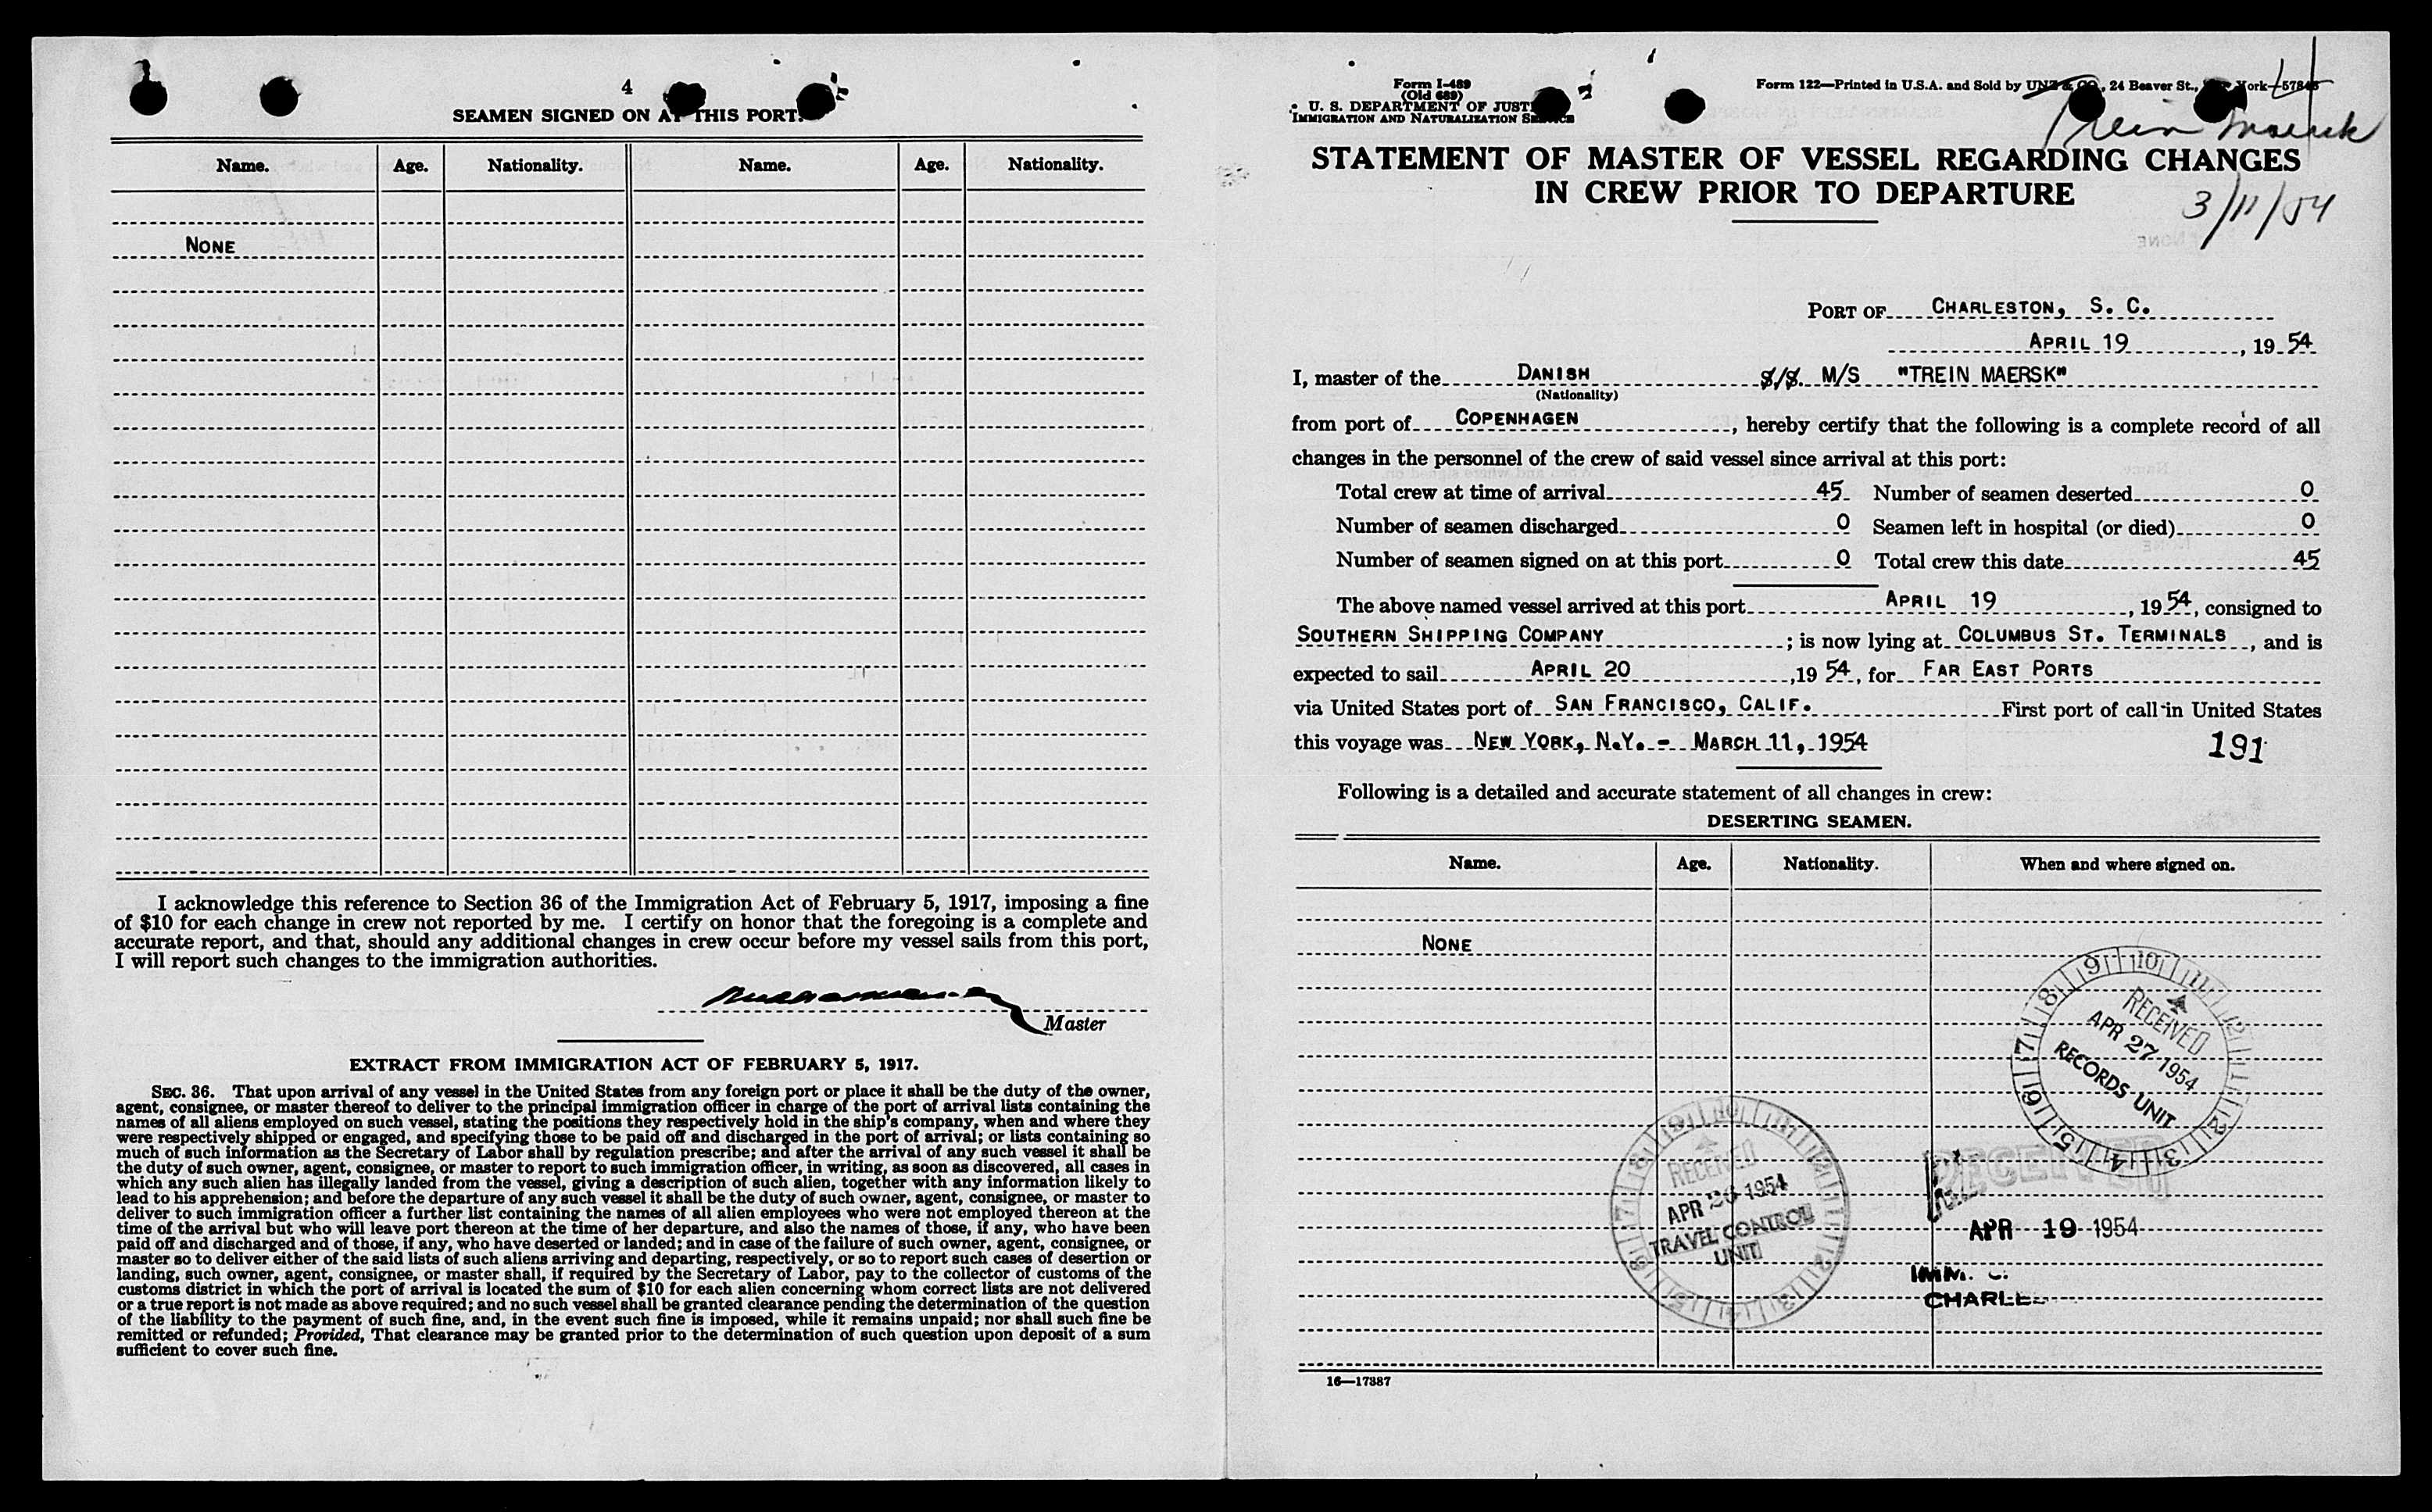 4
SEAMEN SIGNED ON AT THIS PORT.
Name. Age. Nationality. Name. Age. Nationality.
NONE
I acknowledge this reference to Section 36 of the Immigration Act of February 5, 1917, imposing a fine
of $10 for each change in crew not reported by me. I certify on honor that the foregoing is a complete and
accurate report, and that, should any additional changes in crew occur before my vessel sails from this port,
I will report such changes to the immigration authorities.
Master
EXTRACT FROM IMMIGRATION ACT OF FEBRUARY 5, 1917.
SEC. 36. That upon arrival of any vessel in the United States from any foreign port or place it shall be the duty of the owner,
agent, consignee, or master thereof to deliver to the principal immigration officer in charge of the port of arrival lists containing the
names of all aliens employed on such vessel, stating the positions they respectively hold in the ship's company, when and where they
were respectively shipped or engaged, and specifying those to be paid off and discharged in the port of arrival; or lists containing so
much of such information as the Secretary of Labor shall by regulation prescribe; and after the arrival of any such vessel it shall be
the duty of such owner, agent, consignee, or master to report to such immigration officer, in writing, as soon as discovered, all cases in
which any such alien has illegally landed from the vessel, giving a description of such alien, together with any information likely to
lead to his apprehension; and before the departure of any such vessel it shall be the duty of such owner, agent, consignee, or master to
deliver to such immigration officer a further list containing the names of all alien employees who were not employed thereon at the
time of the arrival but who will leave port thereon at the time of her departure, and also the names of those, if any, who have been
paid off and discharged and of those, if any, who have deserted or landed; and in case of the failure of such owner, agent, consignee, or
master so to deliver either of the said lists of such aliens arriving and departing, respectively, or so to report such cases of desertion or
landing, such owner, agent, consignee, or master shall, if required by the Secretary of Labor, pay to the collector of customs of the
customs district in which the port of arrival is located the sum of $10 for each alien concerning whom correct lists are not delivered
or a true report is not made as above required; and no such vessel shall be granted clearance pending the determination of the question
of the liability to the payment of such fine, and, in the event such fine is imposed, while it remains unpaid; nor shall such fine be
remitted or refunded; Provided, That clearance may be granted prior to the determination of such question upon deposit of a sum
sufficient to cover such fine.
Form I-489
(Old 689)
U. S. DEPARTMENT OF JUSTICE
IMMIGRATION AND NATURALIZATION SERVICE
Form 122—Printed in U.S.A. and Sold by UNZ & CO., 24 Beaver St., New York—57845
4
Trein Maersk
STATEMENT OF MASTER OF VESSEL REGARDING CHANGES
IN CREW PRIOR TO DEPARTURE
3/11/54
PORT OF CHARLESTON, S. C.
APRIL 19, 19 54
I, master of the DANISH S/S. M/S "TREIN MAERSK"
(Nationality)
from port of COPENHAGEN, hereby certify that the following is a complete record of all
changes in the personnel of the crew of said vessel since arrival at this port:
Total crew at time of arrival 45 Number of seamen deserted 0
Number of seamen discharged 0 Seamen left in hospital (or died) 0
Number of seamen signed on at this port 0 Total crew this date 45
The above named vessel arrived at this port APRIL 19, 19 54, consigned to
SOUTHERN SHIPPING COMPANY; is now lying at COLUMBUS ST. TERMINALS, and is
expected to sail APRIL 20, 19 54, for FAR EAST PORTS
via United States port of SAN FRANCISCO, CALIF. First port of call in United States
this voyage was NEW YORK, N.Y. - MARCH 11, 1954
191
Following is a detailed and accurate statement of all changes in crew:
DESERTING SEAMEN.
Name. Age. Nationality. When and where signed on.
NONE
RECEIVED
APR 27 1954
RECORDS UNIT
RECEIVED
APR 26 1954
TRAVEL CONTROL
UNIT
RECEIVED
APR 19 1954
IMM.
16—17387